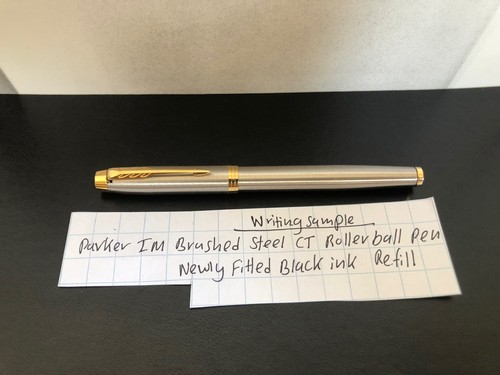 Writing sample
Parker IM Brushed Steel CT Rollerball Pen
Newly Fitted Black ink Refill